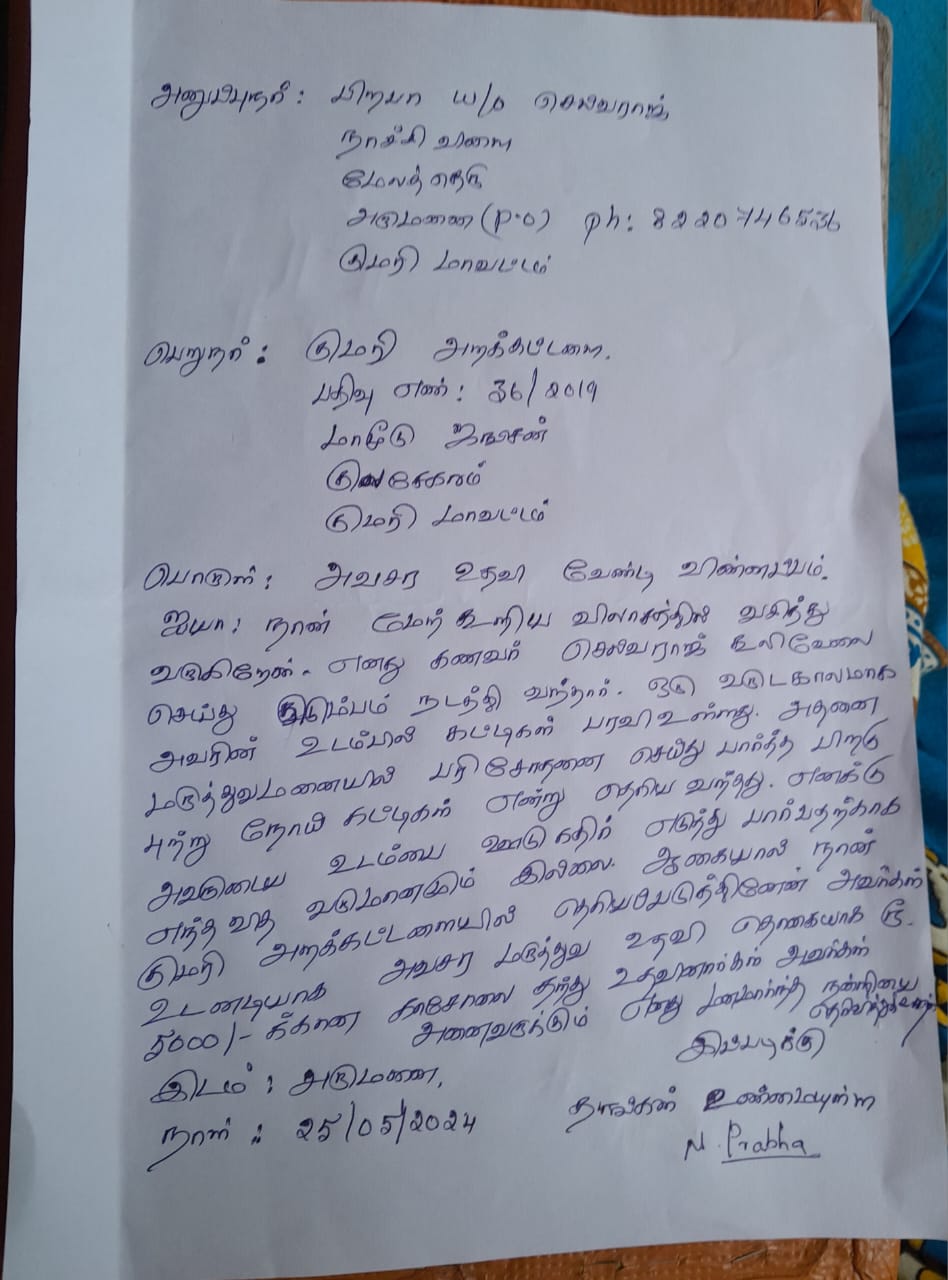 அனுப்புநர் : பிறபா W/o செல்வராஜ்
நாச்சி விளை
மேலத் தெரு
அருமனை (P.O) Ph: 8220746536
குமரி மாவட்டம்
பெறுநர் : குமரி அறக்கட்டளை.
பதிவு எண் : 36/2019
மாமூடு ஜங்சன்
குலசேகரம்
குமரி மாவட்டம்
பொருள் : அவசர உதவி வேண்டி விண்ணப்பம்.
ஐயா : நான் மேற் கூறிய விலாசத்தில் வசித்து
வருகிறேன். எனது கணவர் செல்வராஜ் கூலிவேலை
செய்து குடும்பம் நடத்தி வந்தார். ஒரு வருடகாலமாக
அவரின் உடம்பில் கட்டிகள் பரவி உள்ளது. அதனை
மருத்துவமனையில் பரிசோதனை செய்து பார்த்த பிறகு
புற்று நோய் கட்டிகள் என்று தெரிய வந்தது. எனக்கு
அவருடைய உடம்பை ஊடு கதிர் எடுத்து பார்ப்பதற்காக
எந்த வித வருமானமும் இல்லை. ஆகையால் நான்
குமரி அறக்கட்டளையில் தெரியப்படுத்தினேன் அவர்கள்
உடனடியாக அவசர மருத்துவ உதவி தொகையாக ரூ.
5000/- க்கான காசோலை தந்து உதவினார்கள் அவர்கள்
அனைவருக்கும் எனது மனமார்ந்த நன்றியை
தெரிவிக்கிறேன்
இப்படிக்கு
இடம் : அருமனை.
தங்கள் உண்மையுள்ள
நாள் : 25/05/2024
N. Prabha